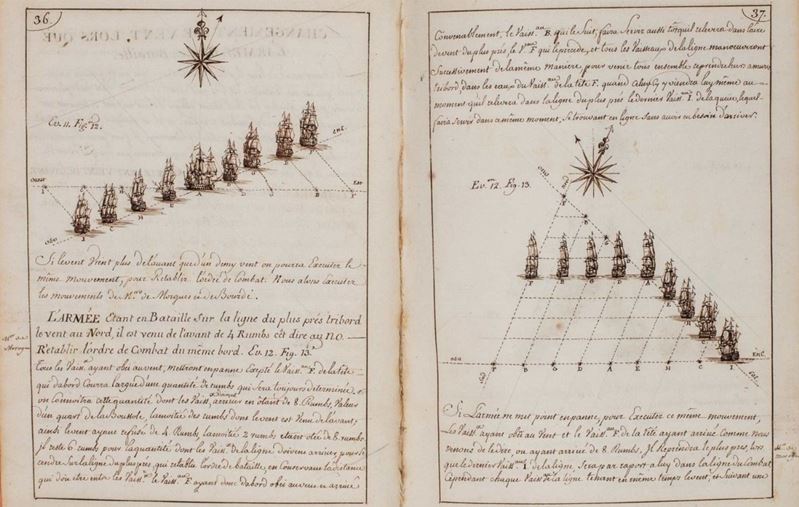 36.
Ev. 11. Fig. 12.
Ouest
Est
A
B
Si le vent Vient plus de l'avant que d'un demy vent on pourra Executer le
même mouvement, pour Retablir l'ordre de Combat. Nous alons Executer
les mouvements de Mr. de Morogues et de Boisdé.
L'ARMÉE Etant en Bataille Sur la ligne du plus prés tribord
le vent au Nord, il est venu de l'avant de 4 Rumbs c'ét dire au NO
Retablir l'ordre de Combat du même bord. Ev. 12. Fig. 13.
Tous les Vaiss. ayant obéi au vent, mettront en panne, Excepté le Vaiss. F. de la tête
qui d'abord Courra largüe d'une quantité de rumbs qui Sera toujours determinée
on connoitra cette quantité dont les Vaiss. arriver en ôtant de 8. Rumbs, Valeur
d'un quart de la Boussole, la moitié des rumbs dont le vent est Venu de l'avant;
ainsi le vent ayant refusé de 4 Rumbs, la moitié 2 rumbs etant otée de 8. rumbs
il reste 6 rumbs pour la quantité dont les Vaiss. de la ligne doivent arriver pour
Sur la ligne du plus prés qui retablit l'ordre de bataille, en Conservant la distance
qui doit être entre les Vaiss. le Vaiss. F. ayant donc d'abord obéi au vent et arrivé
37.
Convenablement, le Vaiss. B. qui le Suit, faira Servir aussi lorsqu'il relevera dans l'aire
de vent du plus prés, le V. F. qui le precede, et tous les Vaisseaux de la ligne manoeuvreront
Succesivement de la même maniere pour venir tous ensemble reprendre leurs amures
tribord, dans les eaux du Vaiss. de la tête F. quand celuy Cy y viendra luy même au
moment qu'il relevera dans la ligne du plus prés le dernier Vaiss. I. de la queüe, lequel
faira Servir dans ce même moment, Se trouvant en ligne Sans avoir eu besoin d'arriver.
Ev. 12. Fig. 13.
F
B
D
A
C
I
Si l'armée ne met point en panne, pour Executer ce même mouvement,
les Vaiss. ayant obéi au Vent et le Vaiss. F. de la tête ayant arrivé Comme nous
venons de le dire, ou ayant arrivé de 8. Rumbs, Il Reprendra le plus prés lors
que le dernier Vaiss. I. de la ligne Sera par raport a luy dans la ligne du Combat
Cependant chaque Vaiss. de la ligne tenant en même temps le vent, et Suivant une